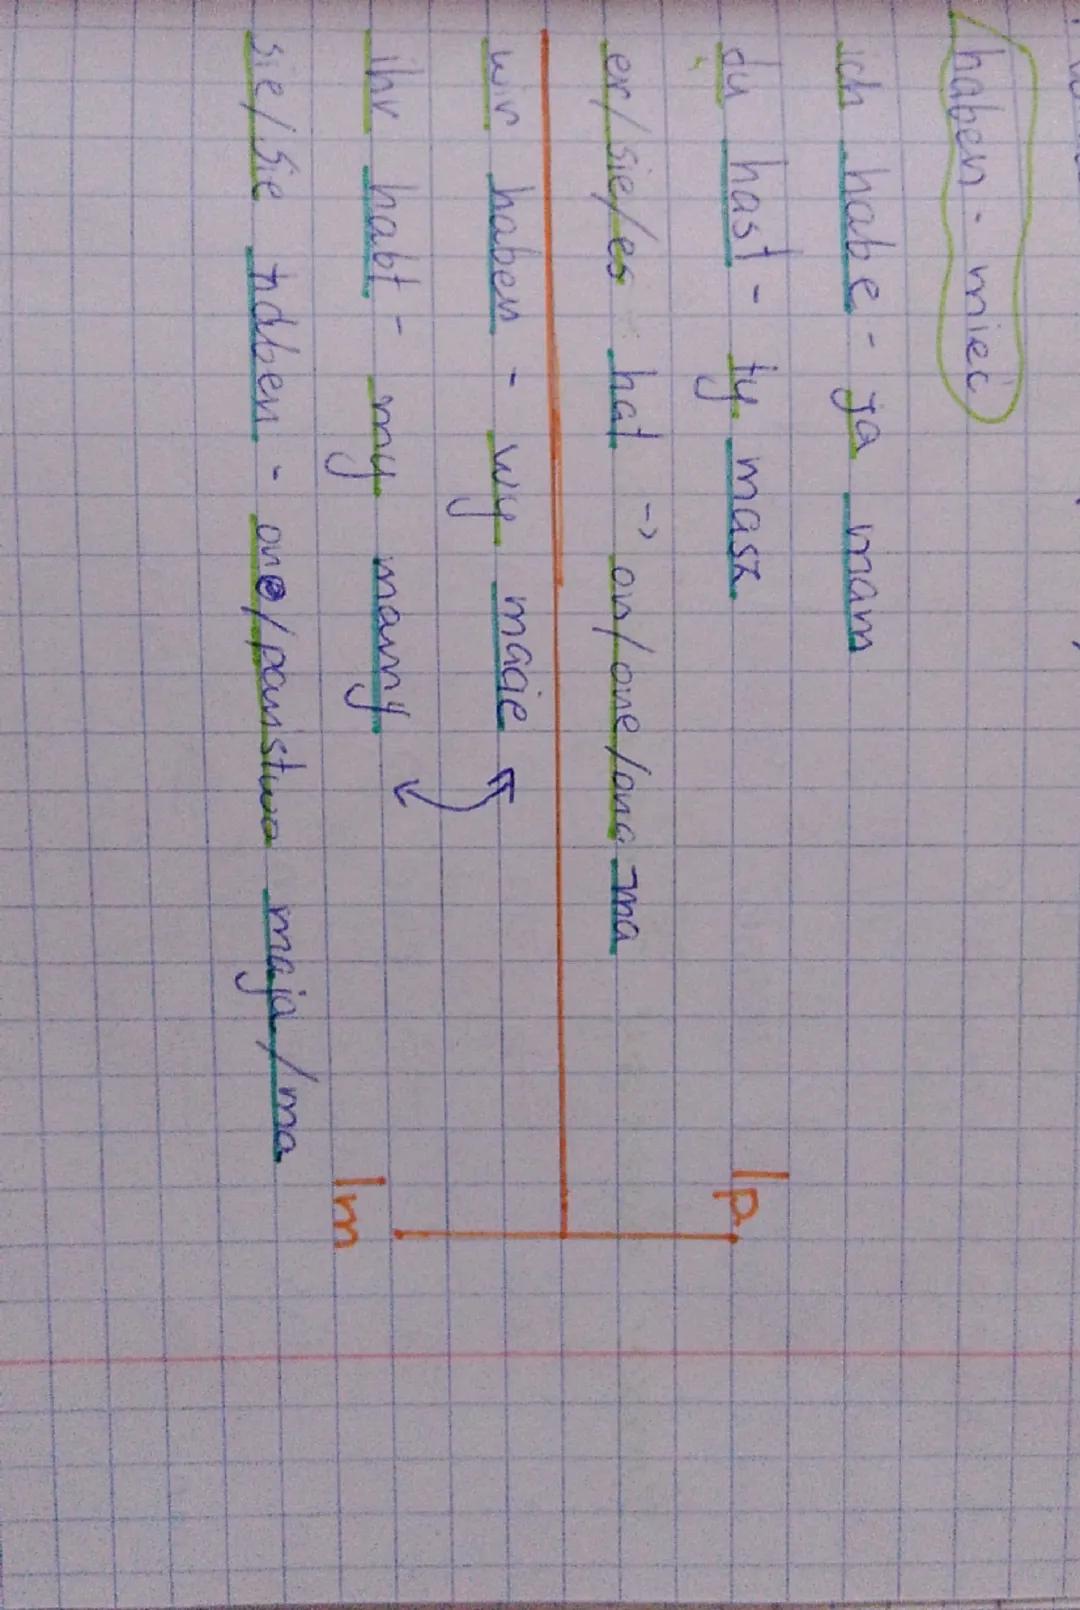 haben - mieć
ich habe - ja mam
du hast - ty masz
er/sie/es hat -> on/one/ona -ma
lp
wir haben - wy macie
ihr habt - my mamy
sie/Sie haben - one/państwo maja/ma
lm